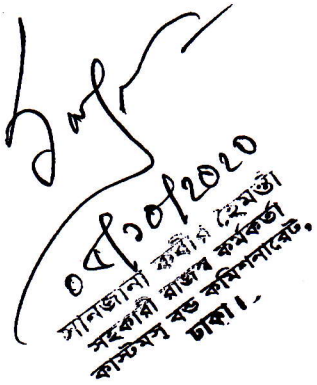 ০৫/১০/২০২০
সানজানা কবীর হেমন্তী
সহকারী রাজস্ব কর্মকর্তা
কাস্টমস্ বন্ড কমিশনারেট,
ঢাকা।